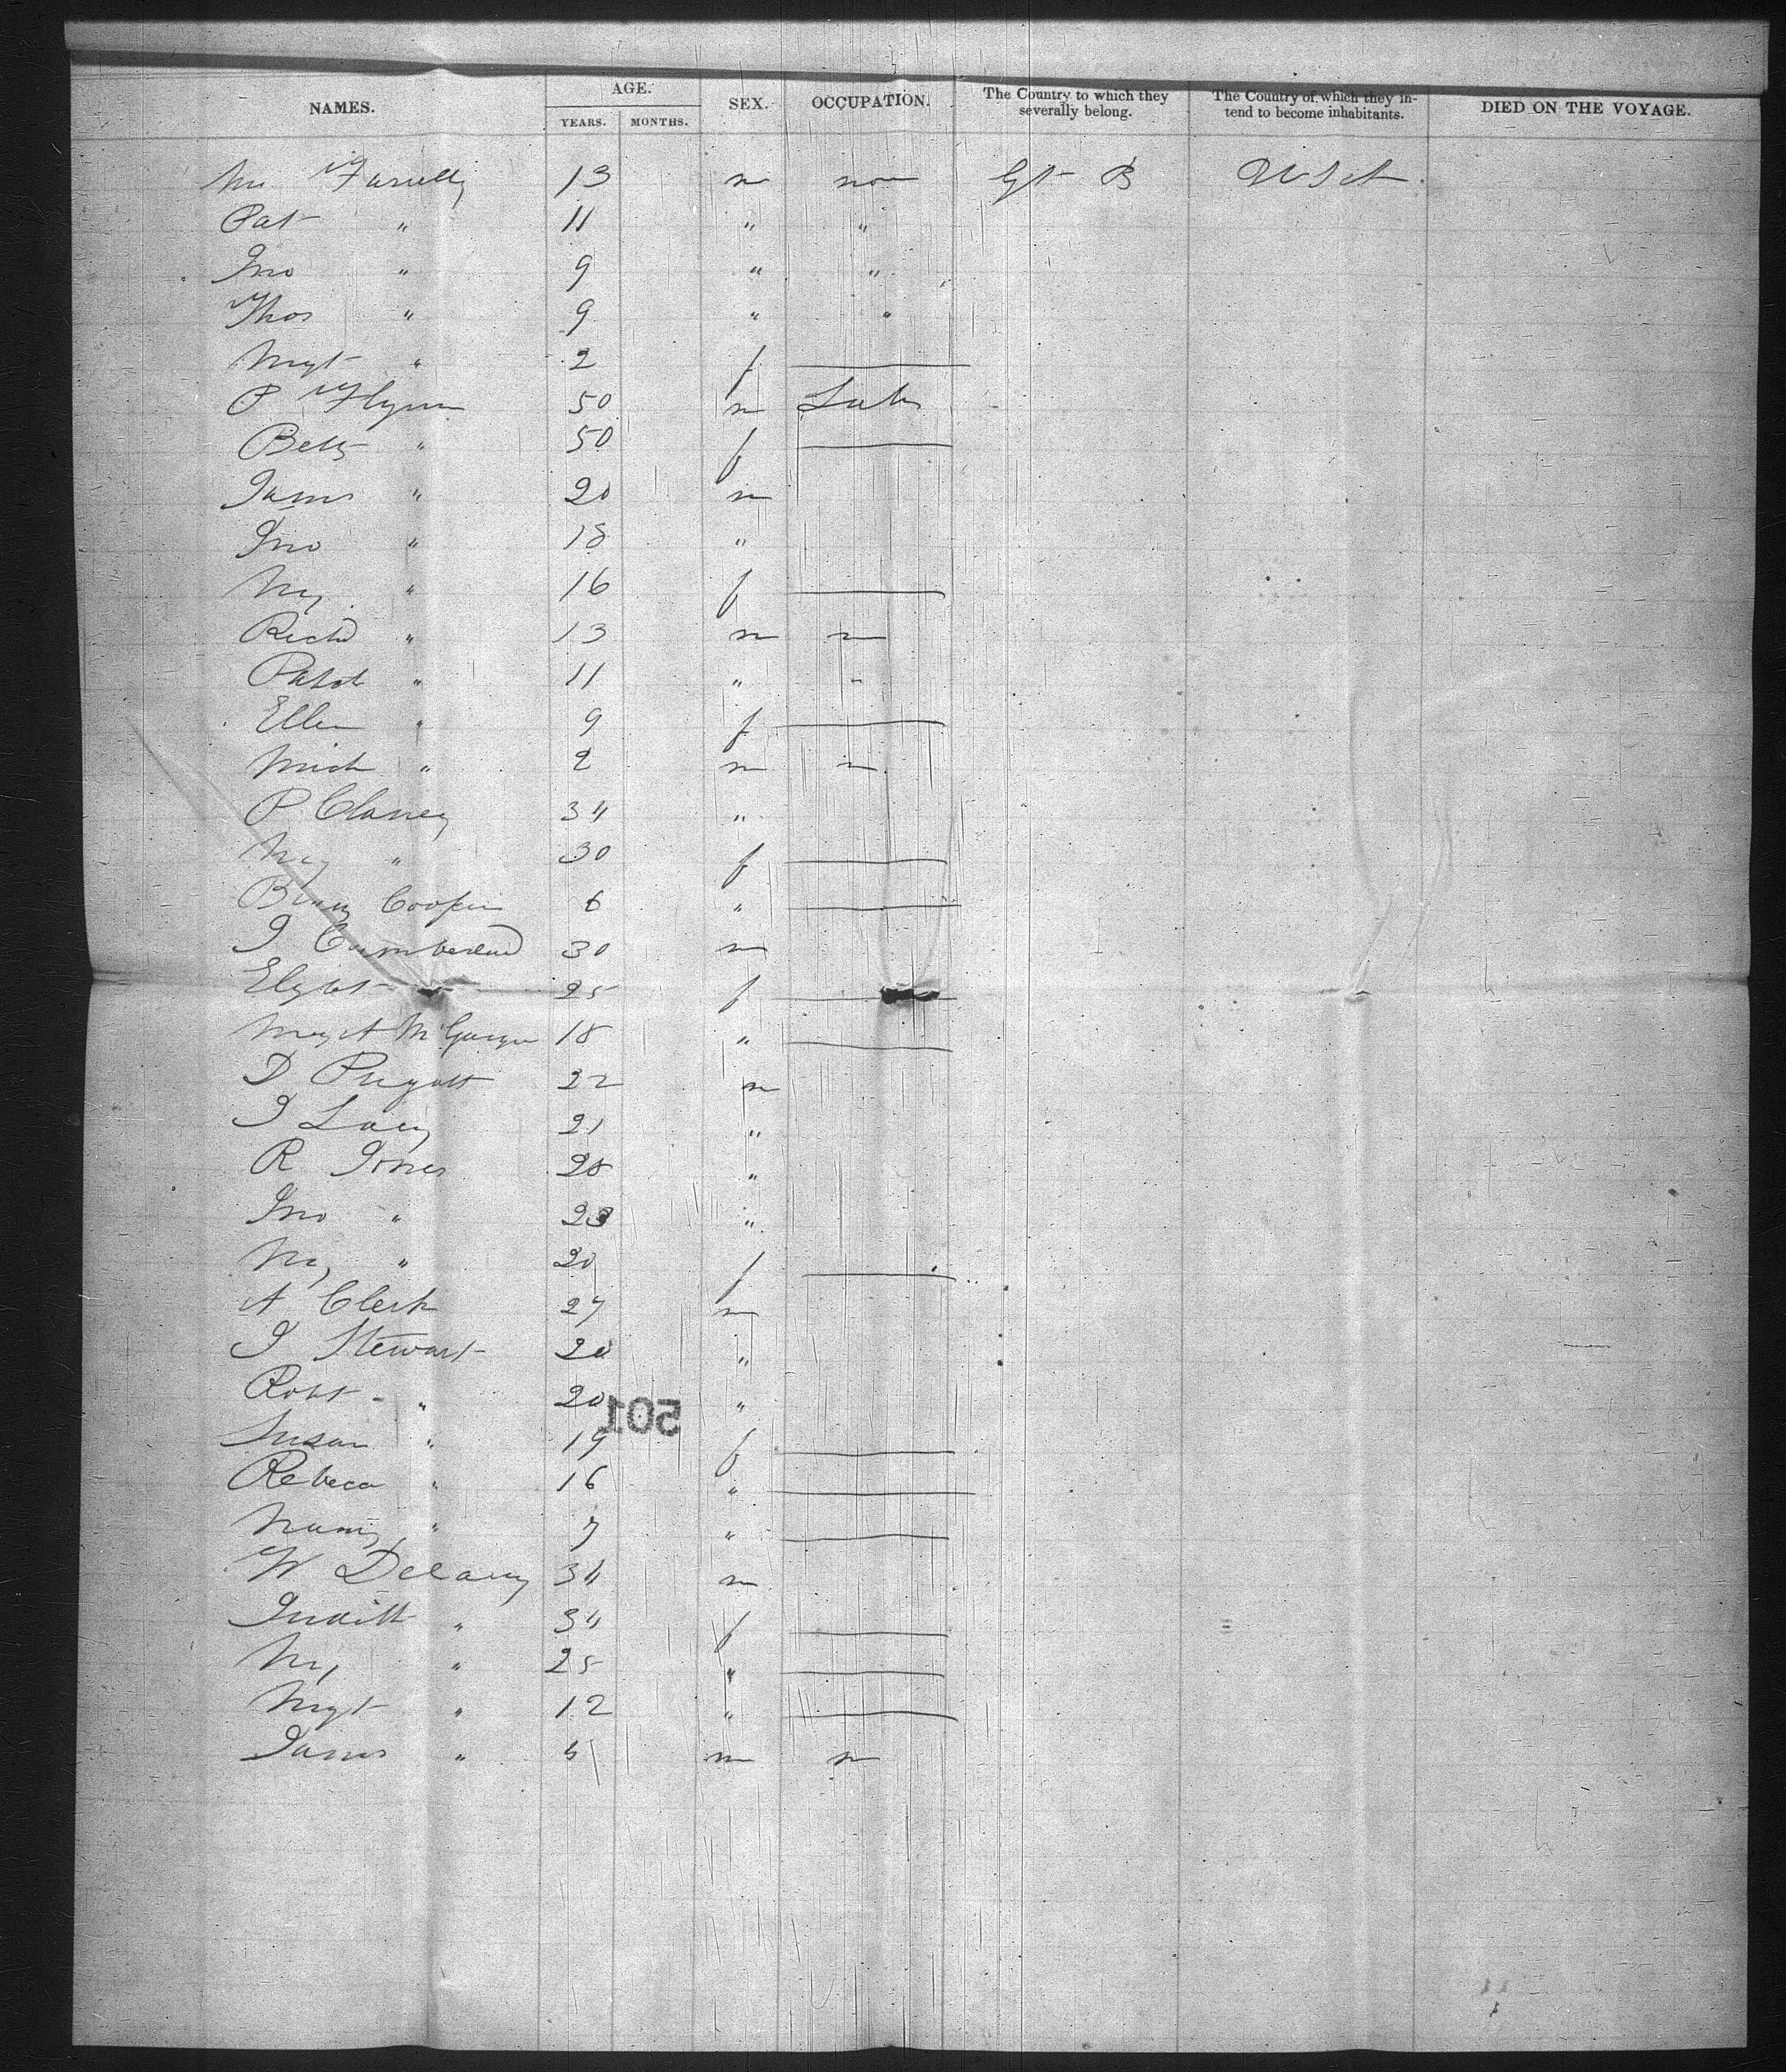 NAMES. AGE. YEARS. MONTHS. SEX. OCCUPATION. The Country to which they severally belong. The Country of which they intend to become inhabitants. DIED ON THE VOYAGE.
Farrelly 13 m non Gt B U St
Pat " 11 " "
Jno " 9 " "
Thos " 9 " "
Mgt " 2 f
P Flynn 50 m Labr
Betty " 50 f
James " 20 m
Jno " 18 "
My " 16 f
Richd " 13 m n
Patck " 11 " "
Ellen " 9 f
Mich " 2 m n
P Clancy 34 "
My " 30 f
Cooper 6 "
J Cumberland 30 m
Elizbt 25 f
18 "
D Pigott 22 m
J Lacy 21 "
R Jones 28 "
Jno " 23 "
My " 20 f
A Clerk 27 m
J Stewart 20 "
Robt " 20 "
501
Susan " 19 f
Rebeca " 16 "
Nancy " 7 "
W Delany 34 m
Judith " 34 f
My " 25 "
Mgt " 12 "
James " m n